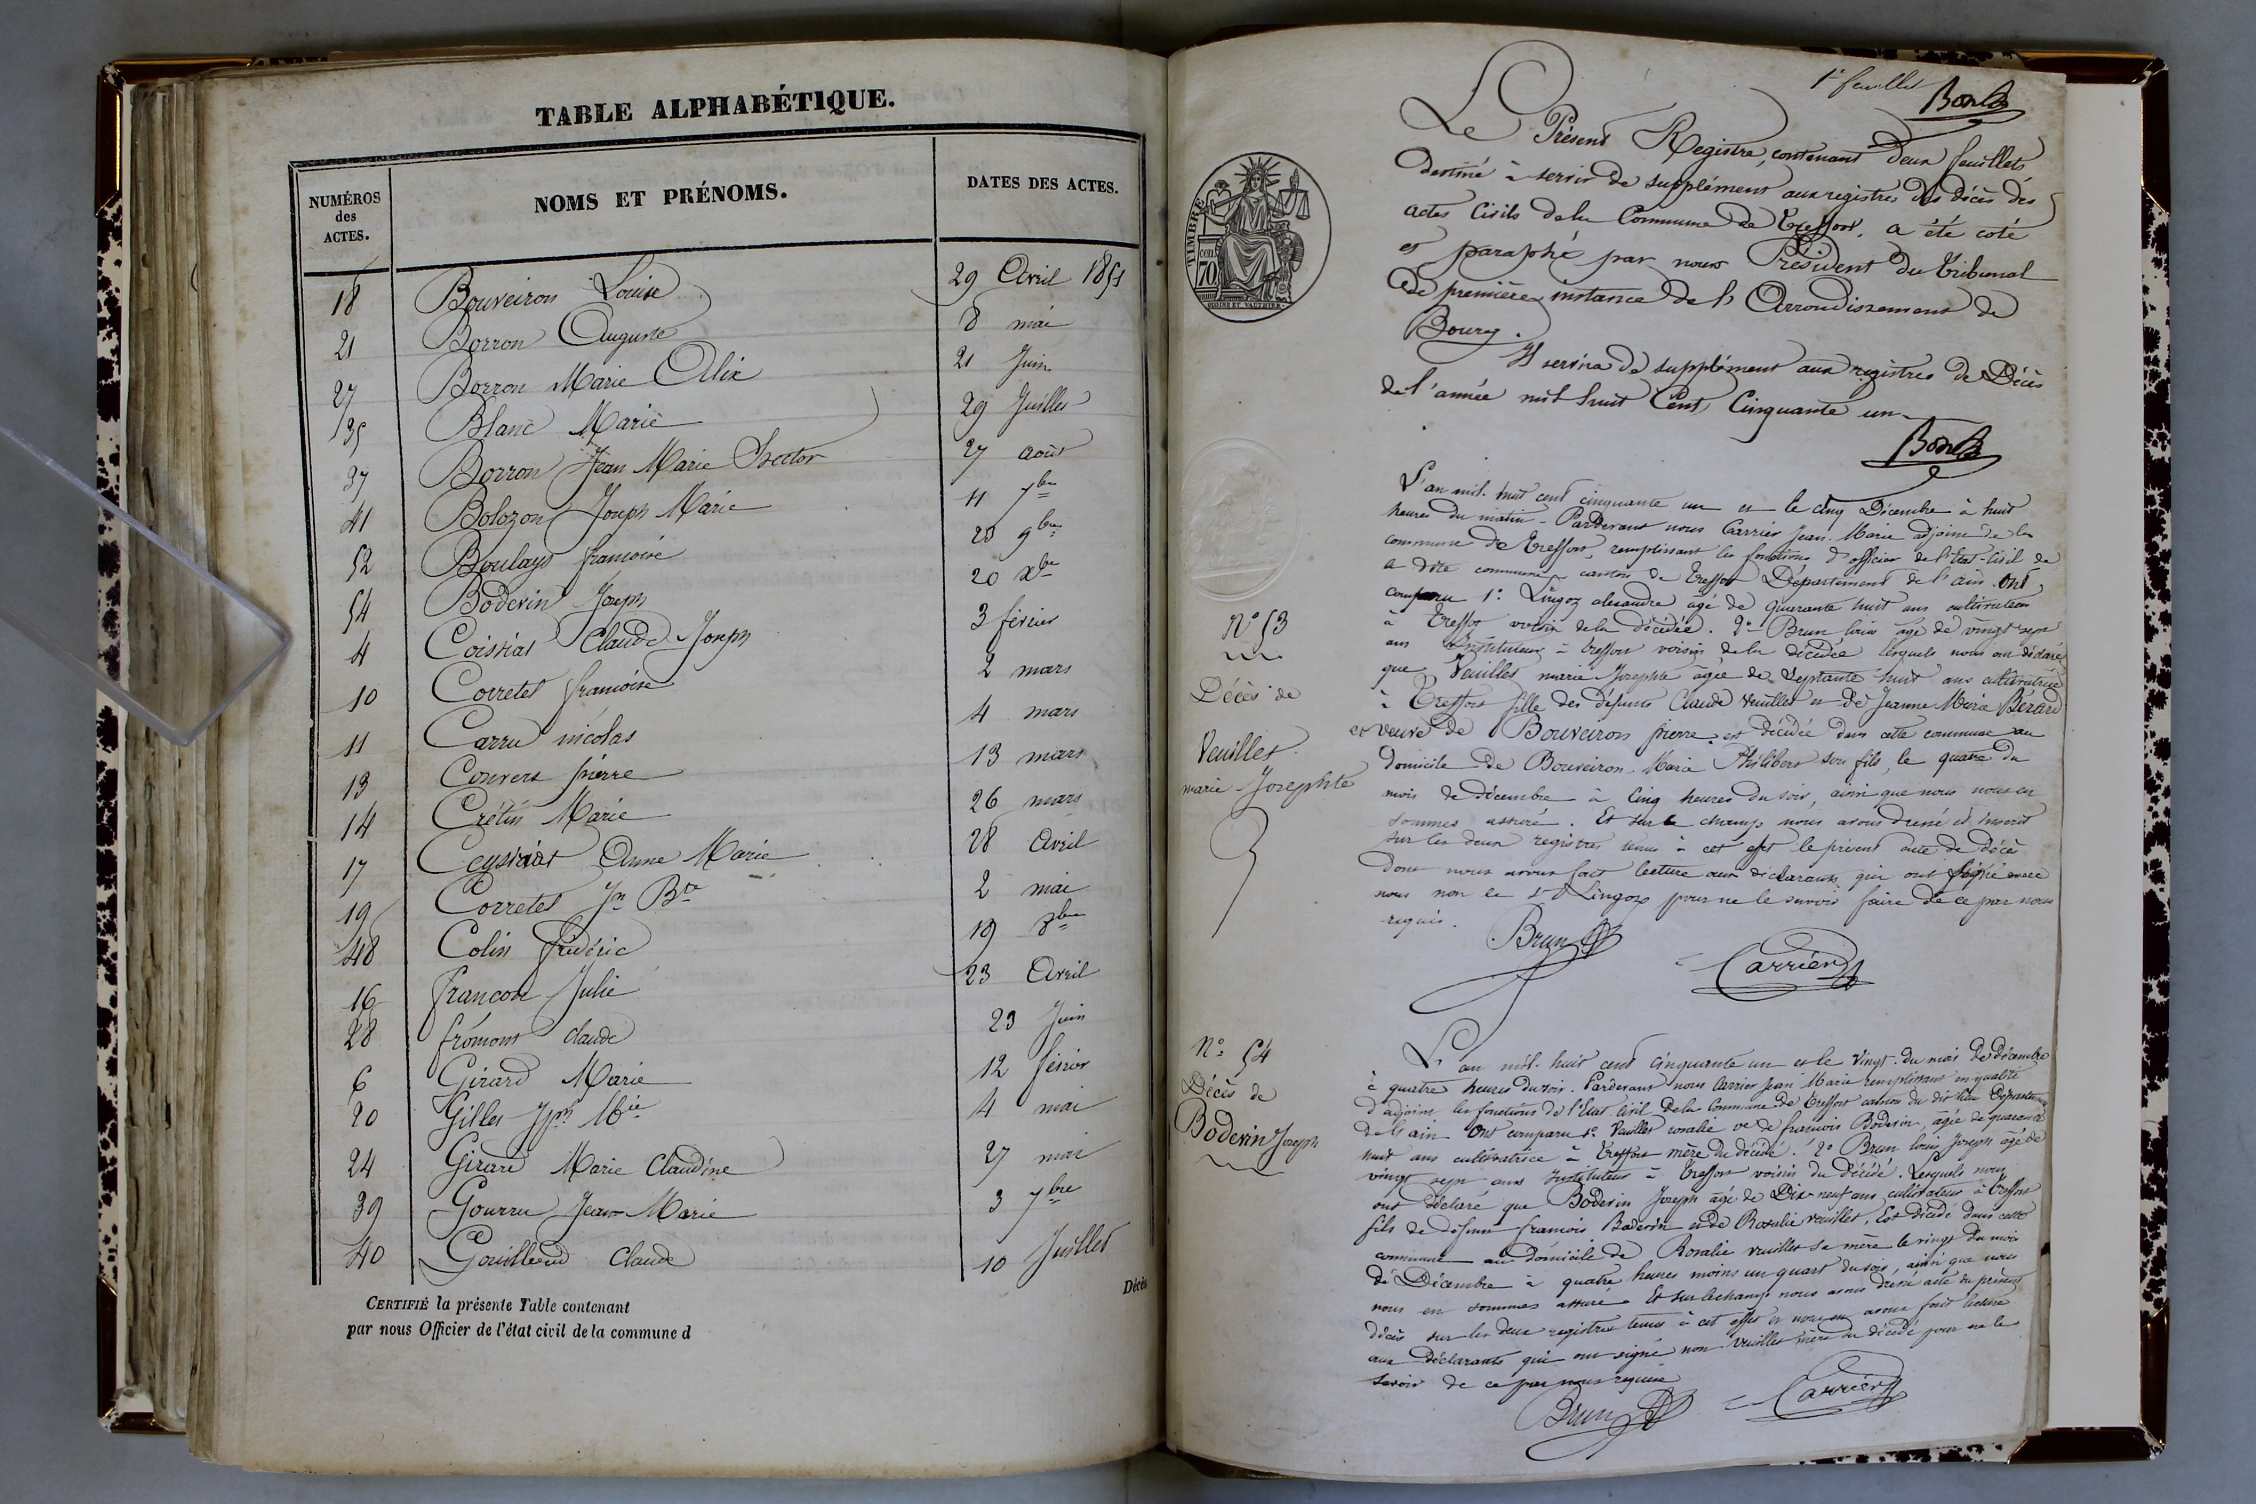 TABLE ALPHABÉTIQUE.
NUMÉROS des ACTES. NOMS ET PRÉNOMS. DATES DES ACTES.
18 Bouveiron Louise 29 Avril 1851
21 Borron Auguste 8 mai
27 Borron Marie Alix 21 Juin
35 Blanc Marie 29 Juillet
37 Borron Jean Marie Hector 27 août
41 Bolozon Joseph Marie 11 7bre
52 Boulays françoise 9bre
54 Boderin Joseph 20 Xbre
4 Coissiat Claude Joseph 3 février
10 Corretel françoise 2 mars
11 Carru nicolas 4 mars
13 Convers pierre 13 mars
14 Crétin Marie 26 mars
17 Ceysériat Anne Marie 28 Avril
19 Corretel Jn Bte 2 mai
48 Colin frédéric 19 8bre
16 francon Julie 23 Avril
28 frémont claude 23 Juin
6 Girard Marie 12 février
20 Gilles Jph Mie 4 mai
24 Girard Marie Claudine 27 mai
39 Gourru Jean Marie 3 7bre
40 Gouilleud Claude 10 Juillet
Décès
CERTIFIÉ la présente Table contenant
par nous Officier de l'état civil de la commune d
1er feuillet
TIMBRE
70
Le Présent Registre, contenant deux feuillets
destiné à servir de supplément aux registres des décès des
actes Civils de la Commune de Treffort, a été coté
et paraphé par nous Président du Tribunal
de première instance de l'Arrondissement de
Bourg.
Il servira de supplément aux registres de Décès
de l'année mil huit Cent Cinquante un
L'an mil huit cent cinquante un et le cinq Décembre à huit
heures du matin - Pardevant nous Carrier Jean Marie adjoint de la
commune de Treffort, remplissant les fonctions d'officier de l'état-civil de
la dite commune canton de Treffort Département de l'ain. Ont
comparu 1°. Lingoz alexandre âgé de quarante huit ans cultivateur
à Treffort voisin de la décédée. 2°- Brun louis âgé de vingt sept
ans Instituteur à treffort voisin de la décédée lesquels nous ont déclaré
que Veuillet marie Josephte âgée de Septante huit ans cultivatrice
à Treffort fille des défunts Claude Veuillet et de Jeanne Marie Bérard
et veuve de Bouveiron pierre, est décédée dans cette commune au
domicile de Bouveiron Marie Philibert son fils, le quatre du
mois de décembre à Cinq heures du soir, ainsi que nous nous en
sommes assuré. Et sur le champ nous avons dressé et inscrit
sur les deux registres tenus à cet effet le présent acte de décès
Dont nous avons fait lecture aux déclarants qui ont signé avec
nous non le sr Lingoz pour ne le savoir faire de ce par nous
requis.
N° 53
Décès de
Veuillet
marie Josephte
Brun
Carrier
N° 54
Décès de
Boderin Joseph
L'an mil huit cent cinquante un et le vingt du mois de décembre
à quatre heures du soir. Pardevant nous Carrier Jean Marie remplissant en qualité
d'adjoint les fonctions de l'Etat civil de la Commune de Treffort canton du dit lieu Département
de l'ain Ont comparu 1°. Veuillet rosalie ve de françois Boderin, âgée de quarante
huit ans cultivatrice à Treffort mère du décédé. 2° Brun louis Joseph âgé de
vingt sept ans Instituteur à Treffort voisin du décédé. Lesquels nous
ont déclaré que Boderin Joseph âgé de Dix-neuf ans, cultivateur à Treffort
fils de défunt françois Boderin et de Rosalie veuillet, Est décédé dans cette
commune au domicile de Rosalie veuillet sa mère le vingt du mois
de Décembre à quatre heures moins un quart du soir, ainsi que nous
nous en sommes assuré. Et sur le champ nous avons dressé acte du présent
décès sur les deux registres tenus à cet effet et nous en avons fait lecture
aux déclarants qui ont signé non veuillet mère du décédé pour ne le
savoir de ce par nous requise
Brun
Carrier